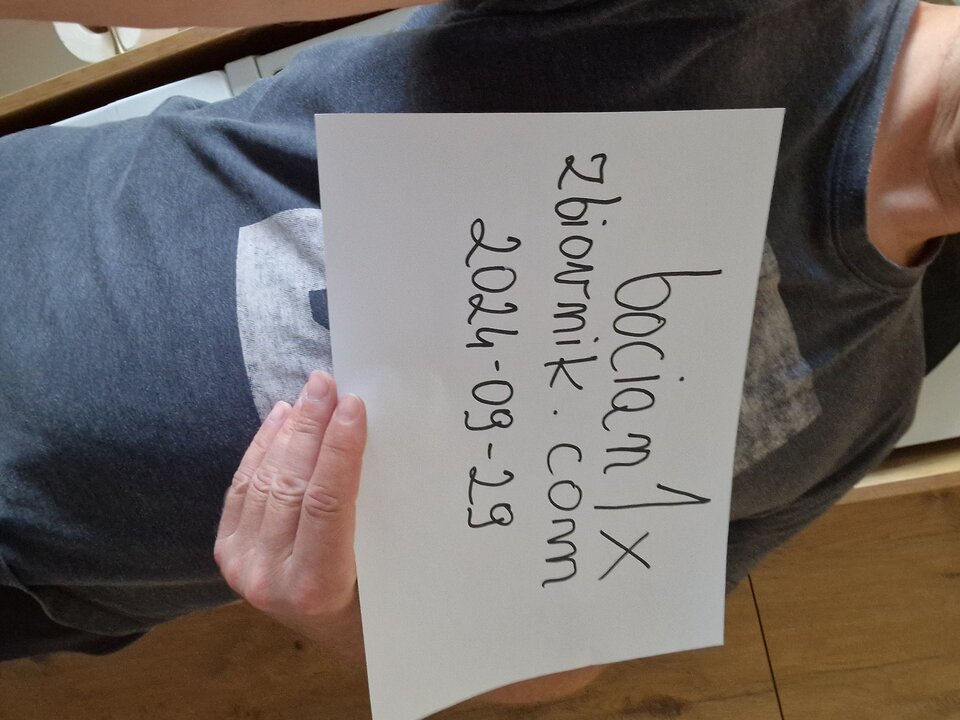 bocian1x
zbiornik.com
2024-09-29